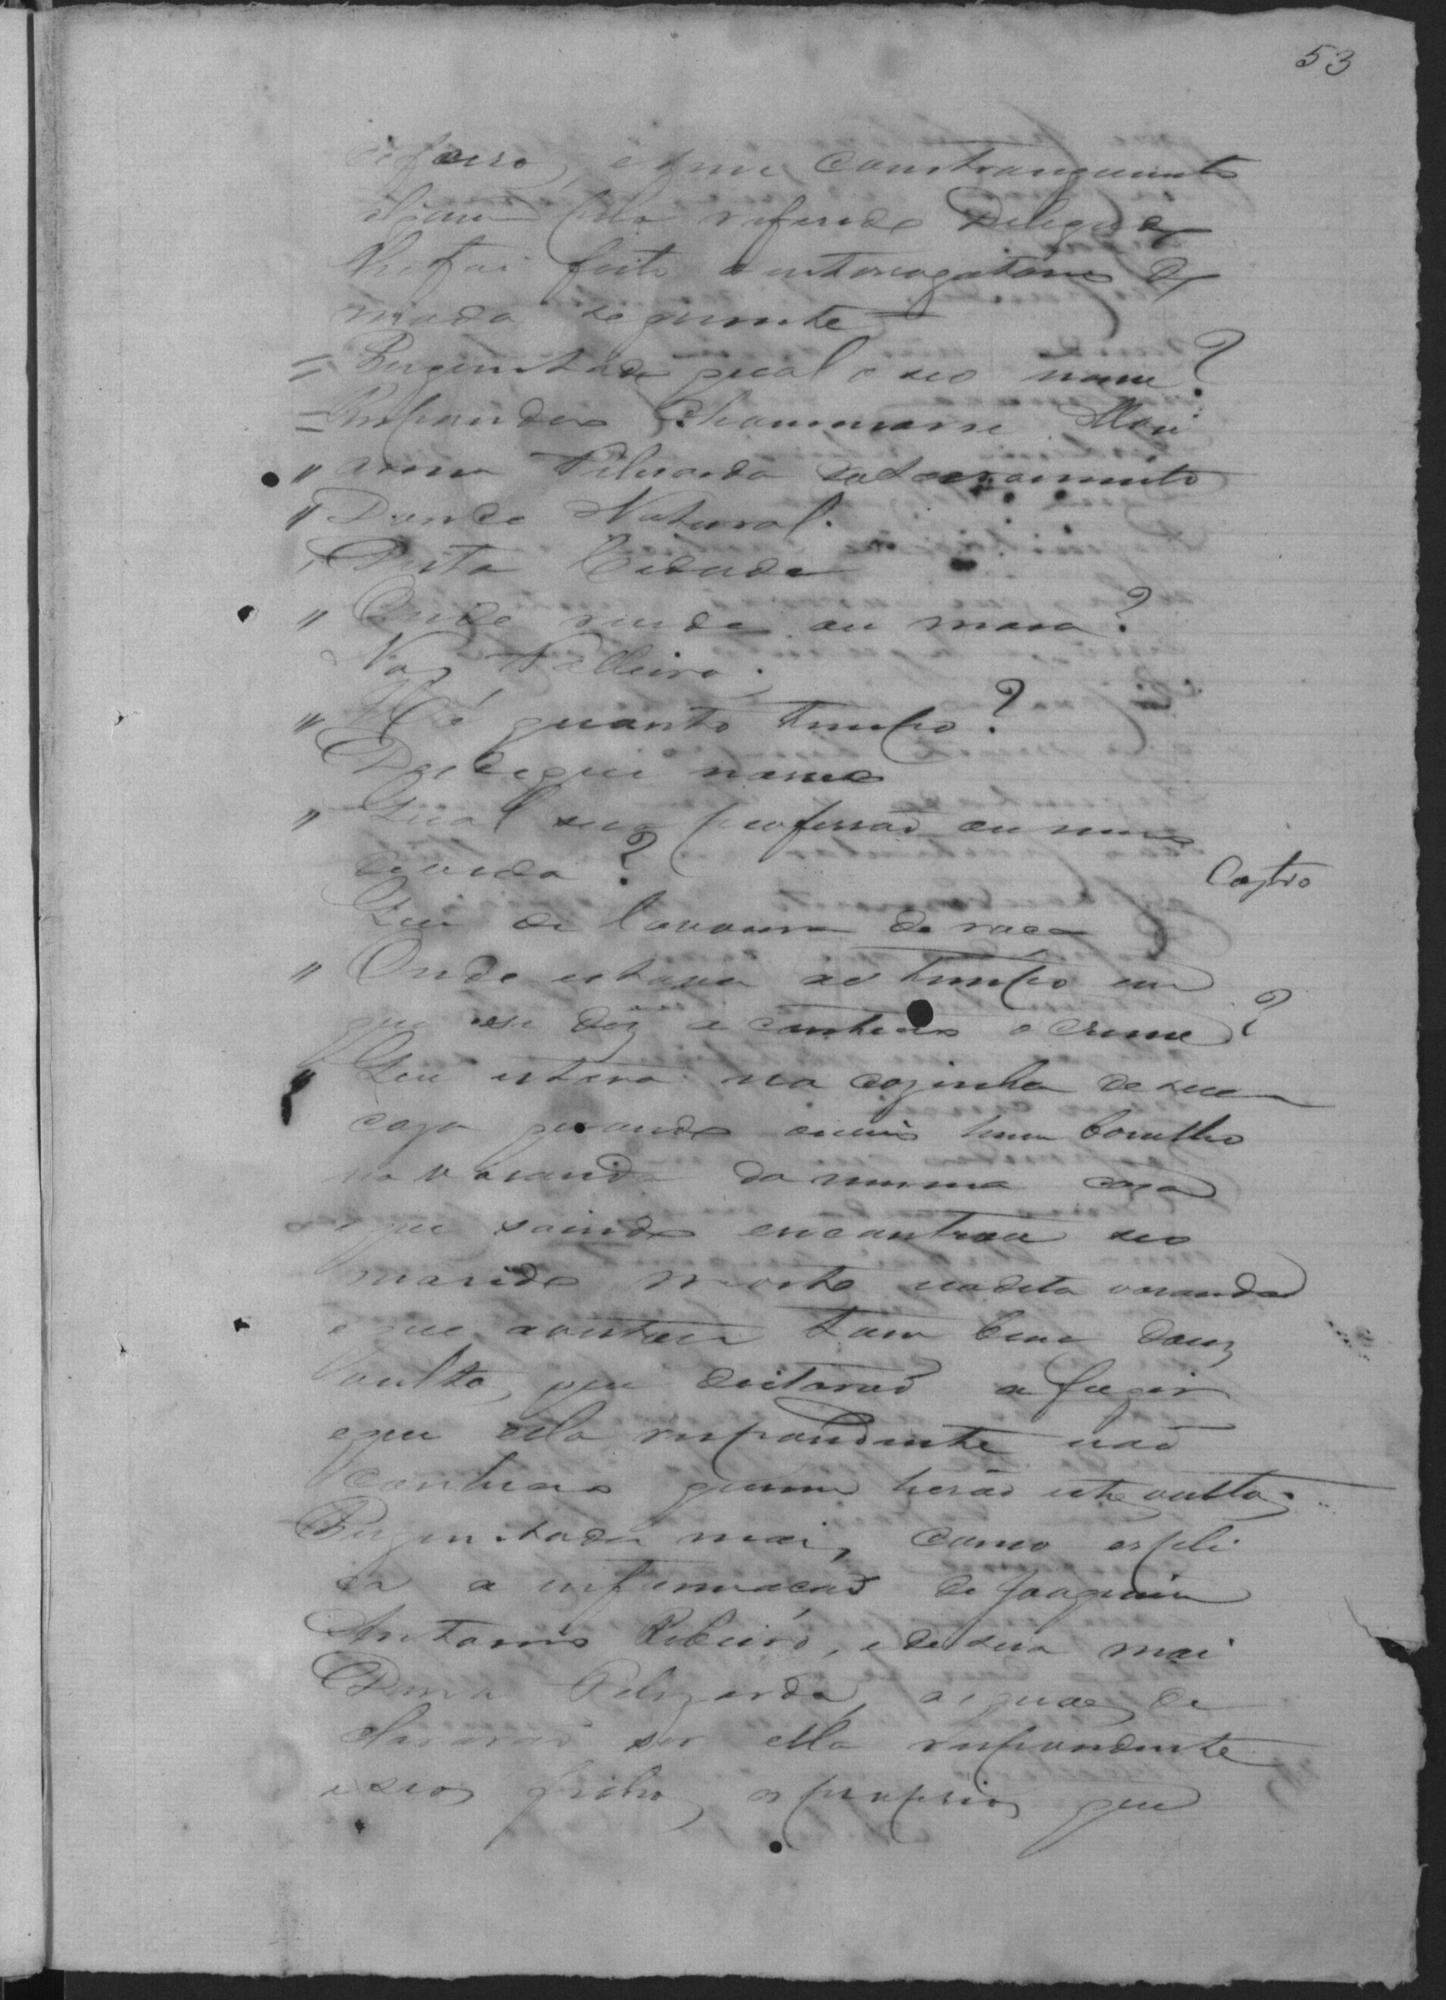 53
de ferro, e sem constrangimento
algum pelo referido Delegado
lhe foi feito o interrogatorio de
modo seguinte
= Perguntada qual o seo nome?
= Respondeo chamar-se Mari
" anna do Sacramento
" Donde Natural.
Desta Cidade
" Onde reside ou mora?
No
" Há quanto tempo?
Desde que nasceo
" Qual sua profissão ou meio
de vida?
Castro
Que de lavoura de roça
" Onde estava ao tempo em
que se diz aconteceo o crime?
" Que estava na cozinha de sua
caza quando ouvio hum barulho
na varanda da mesma caza
e que saindo encontrou seo
marido morto na dita varanda
e que avistou tam bem dous
vultos, que deitarão a fugir
e que ella respondente não
conheceo quem herão estes vultos.
Perguntada mais, como espli
ca a informação de Joaquim
Antonio Ribeiro, e de sua mai
Dona, as quaes de
clararão ser ella respondente
e seos filhos os proprios que